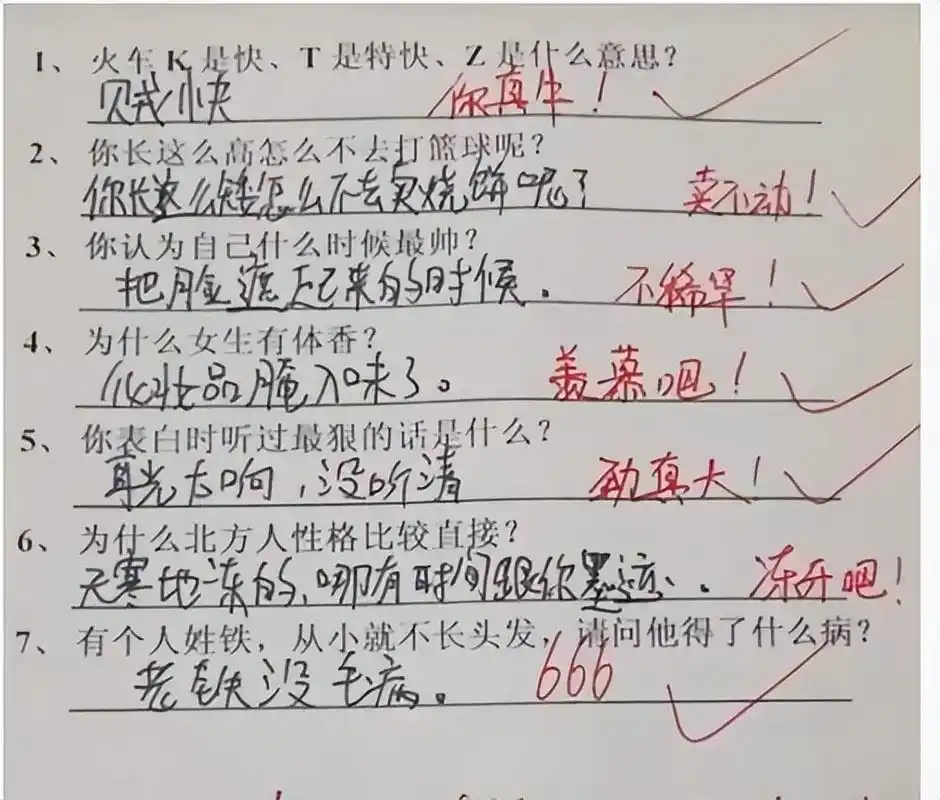 1、火车 K 是快、T 是特快、Z 是什么意思？
贼快 你真牛！
2、你长这么高怎么不去打篮球呢？
你长这么矮怎么不去卖烧饼呢？ 卖不动！
3、你认为自己什么时候最帅？
把脸遮起来的时候. 不稀罕！
4、为什么女生有体香？
化妆品腌入味了。 羡慕吧！
5、你表白时听过最狠的话是什么？
耳光太响,没听清 劲真大！
6、为什么北方人性格比较直接？
天寒地冻的,哪有时间跟你墨迹. 冻歼吧！
7、有个人姓铁，从小就不长头发，请问他得了什么病？
老铁没毛病。 666